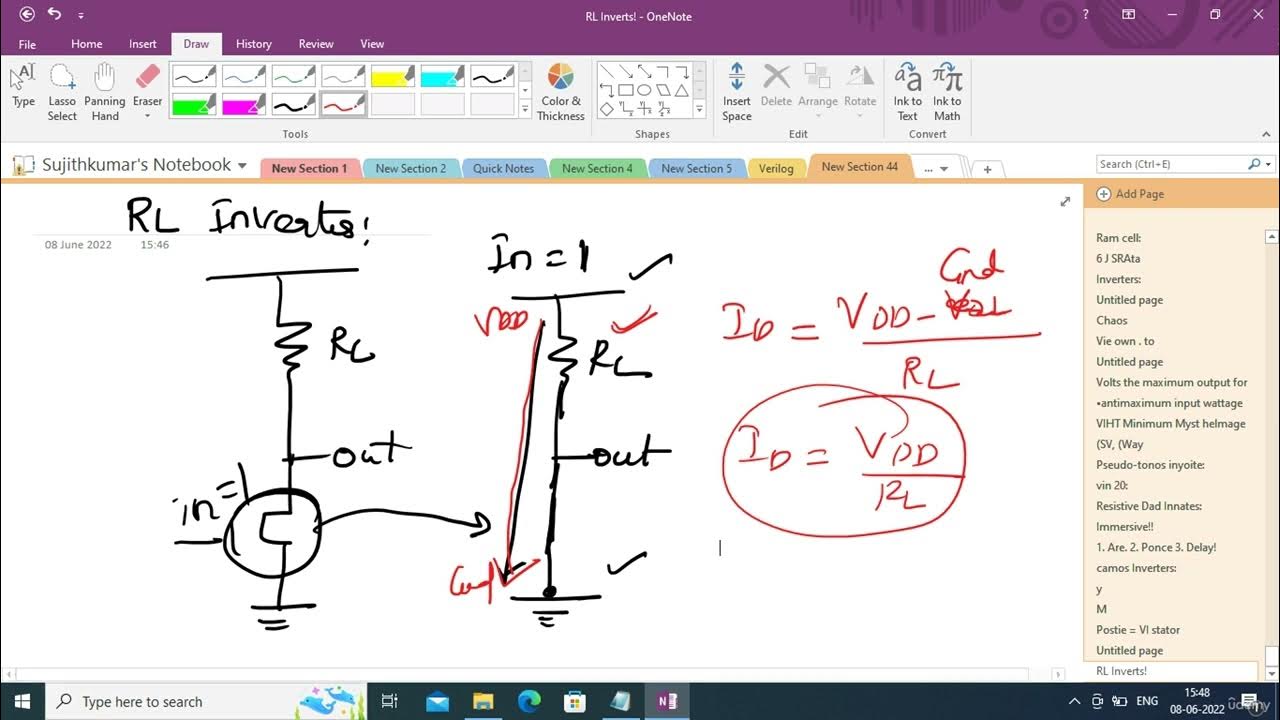 RL Inverts! - OneNote
File Home Insert Draw History Review View
Type
Lasso Select
Panning Hand
Eraser
Color & Thickness
Insert Space
Delete
Arrange
Rotate
Ink to Text
Ink to Math
Tools
Shapes
Edit
Convert
Sujithkumar's Notebook
New Section 1
New Section 2
Quick Notes
New Section 4
New Section 5
Verilog
New Section 44
...
Search (Ctrl+E)
RL Inverts!
08 June 2022 15:46
RL
out
in=1
In = 1
VDD
RL
out
Gnd
ID = VDD - Gnd
RL
ID = VDD
RL
Add Page
Ram cell:
6 J SRAta
Inverters:
Untitled page
Chaos
Vie own . to
Untitled page
Volts the maximum output for
•antimaximum input wattage
VIHT Minimum Myst helmage
(SV, (Way
Pseudo-tonos inyoite:
vin 20:
Resistive Dad Innates:
Immersive!!
1. Are. 2. Ponce 3. Delay!
camos Inverters:
y
M
Postie = VI stator
Untitled page
RL Inverts!
Type here to search
ENG
15:48
08-06-2022
udemy